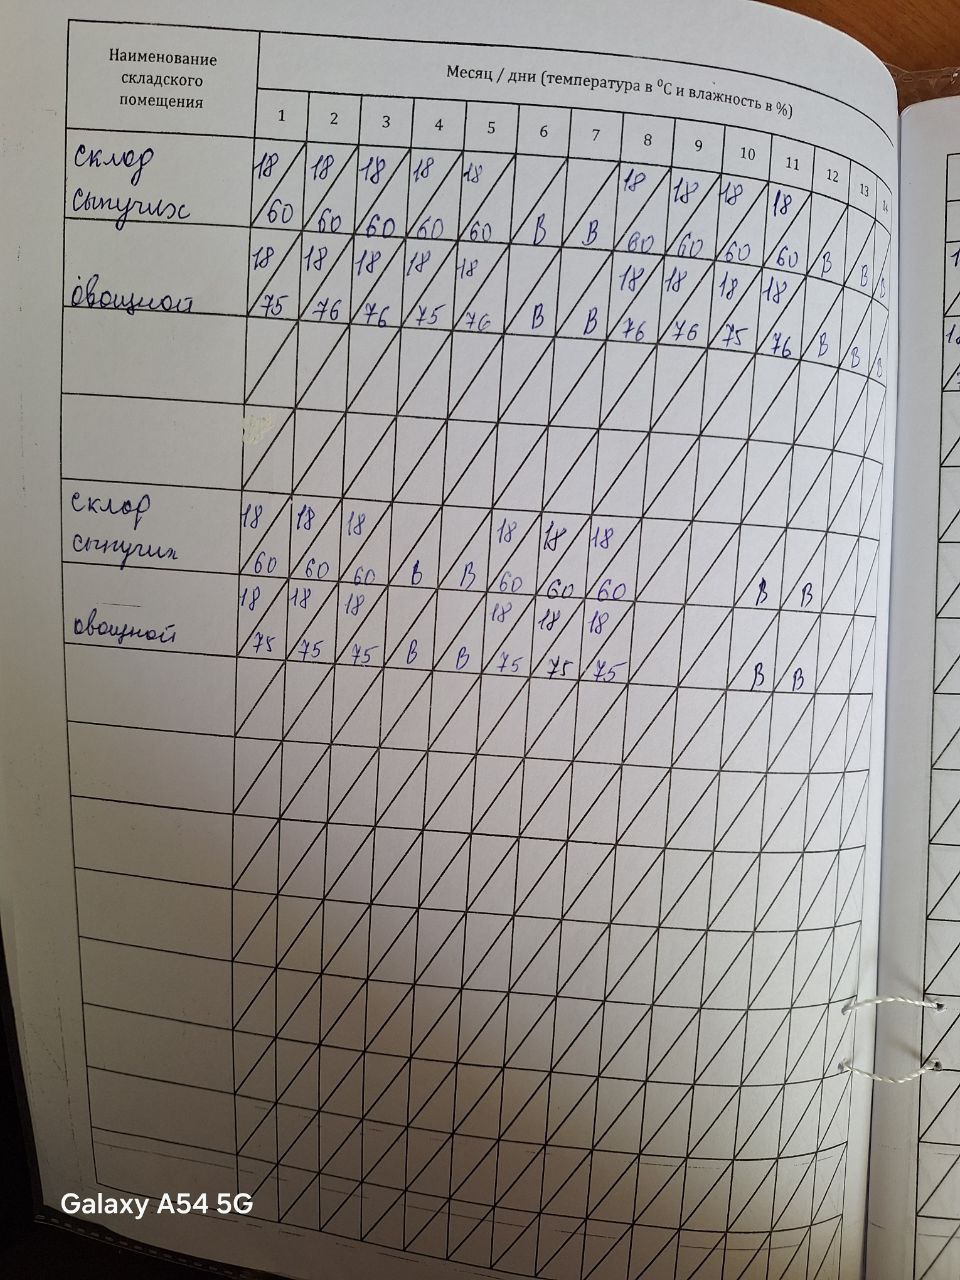 Наименование складского помещения
Месяц / дни (температура в ⁰С и влажность в %)
1 2 3 4 5 6 7 8 9 10 11 12 13 14
склад 18 18 18 18 18 18 18 18 18
сыпучих 60 60 60 60 60 В В 60 60 60 60 В В В
18 18 18 18 18 18 18 18 18
овощной 75 76 76 75 76 В В 76 76 75 76 В В В
склад 18 18 18 18 18 18
сыпучих 60 60 60 В В 60 60 60 В В
18 18 18 18 18 18
овощной 75 75 75 В В 75 75 75 В В
Galaxy A54 5G